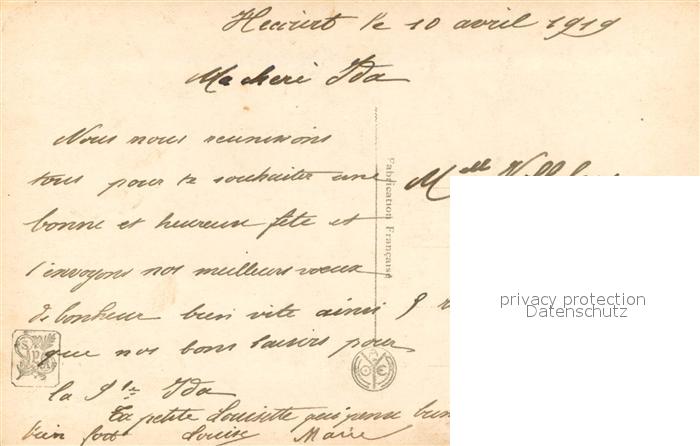 Hecourt le 10 avril 1919
Ma cheri Ida
Nous nous reunixons
tous pour te souhaiter une
bonne et heureuse fête et
t'envoyons nos meilleurs voeux
de bonheur bien vite ainsi
que nos bons baisers pour
la Ste Ida
Ta petite Louisette qui pense bien
bien fort Louise Marie
Melle
Fabrication Française
privacy protection
Datenschutz